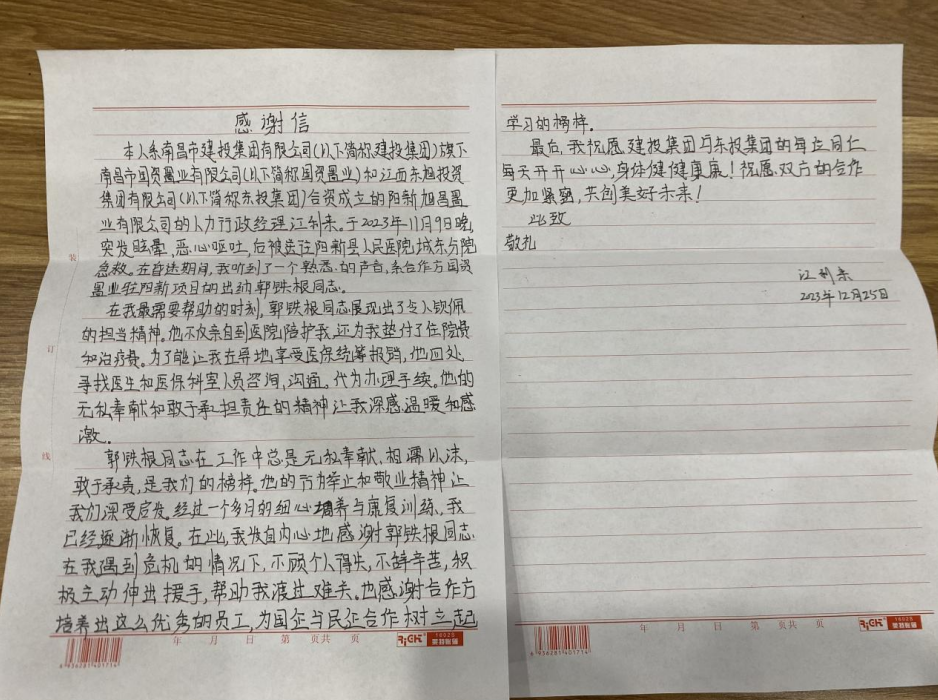 感谢信
本人系南昌市建投集团有限公司(以下简称建投集团)旗下
南昌市国资置业有限公司(以下简称国资置业)和江西东旭投资
集团有限公司(以下简称东投集团)合资成立的阳新旭昌置
业有限公司的人力行政经理江利来。于2023年11月9日晚,
突发眩晕,恶心呕吐,后被送往阳新县人民医院城东分院
急救。在昏迷期间,我听到了一个熟悉的声音,系合作方国资
置业驻阳新项目的出纳郭铁根同志。
在我最需要帮助的时刻,郭铁根同志展现出了令人钦佩
的担当精神。他不仅亲自到医院陪护我,还为我垫付了住院费
和治疗费。为了能让我在异地享受医保统筹报销,他四处
寻找医生和医保科室人员咨询,沟通。代为办理手续。他的
无私奉献和敢于承担责任的精神让我深感温暖和感
激。
郭铁根同志在工作中总是无私奉献,相濡以沫,
敢于承责,是我们的榜样。他的行为举止和敬业精神让
我们深受启发。经过一个多月的细心培养与康复训练,我
已经逐渐恢复。在此,我发自内心地感谢郭铁根同志
在我遇到危机的情况下,不顾个人得失,不辞辛苦,积
极主动伸出援手,帮助我渡过难关。也感谢合作方
培养出这么优秀的员工,为国企与民企合作树立起
装
订
线
年 月 日 第 页共 页
RiCH 16028
6936281401714
学习的榜样。
最后,我祝愿建投集团与东投集团的每位同仁
每天开开心心,身体健健康康!祝愿双方的合作
更加紧密,共创美好未来!
此致
敬礼
江利来
2023年12月25日
年 月 日 第 页共 页
RiCH 16028
6936281401714